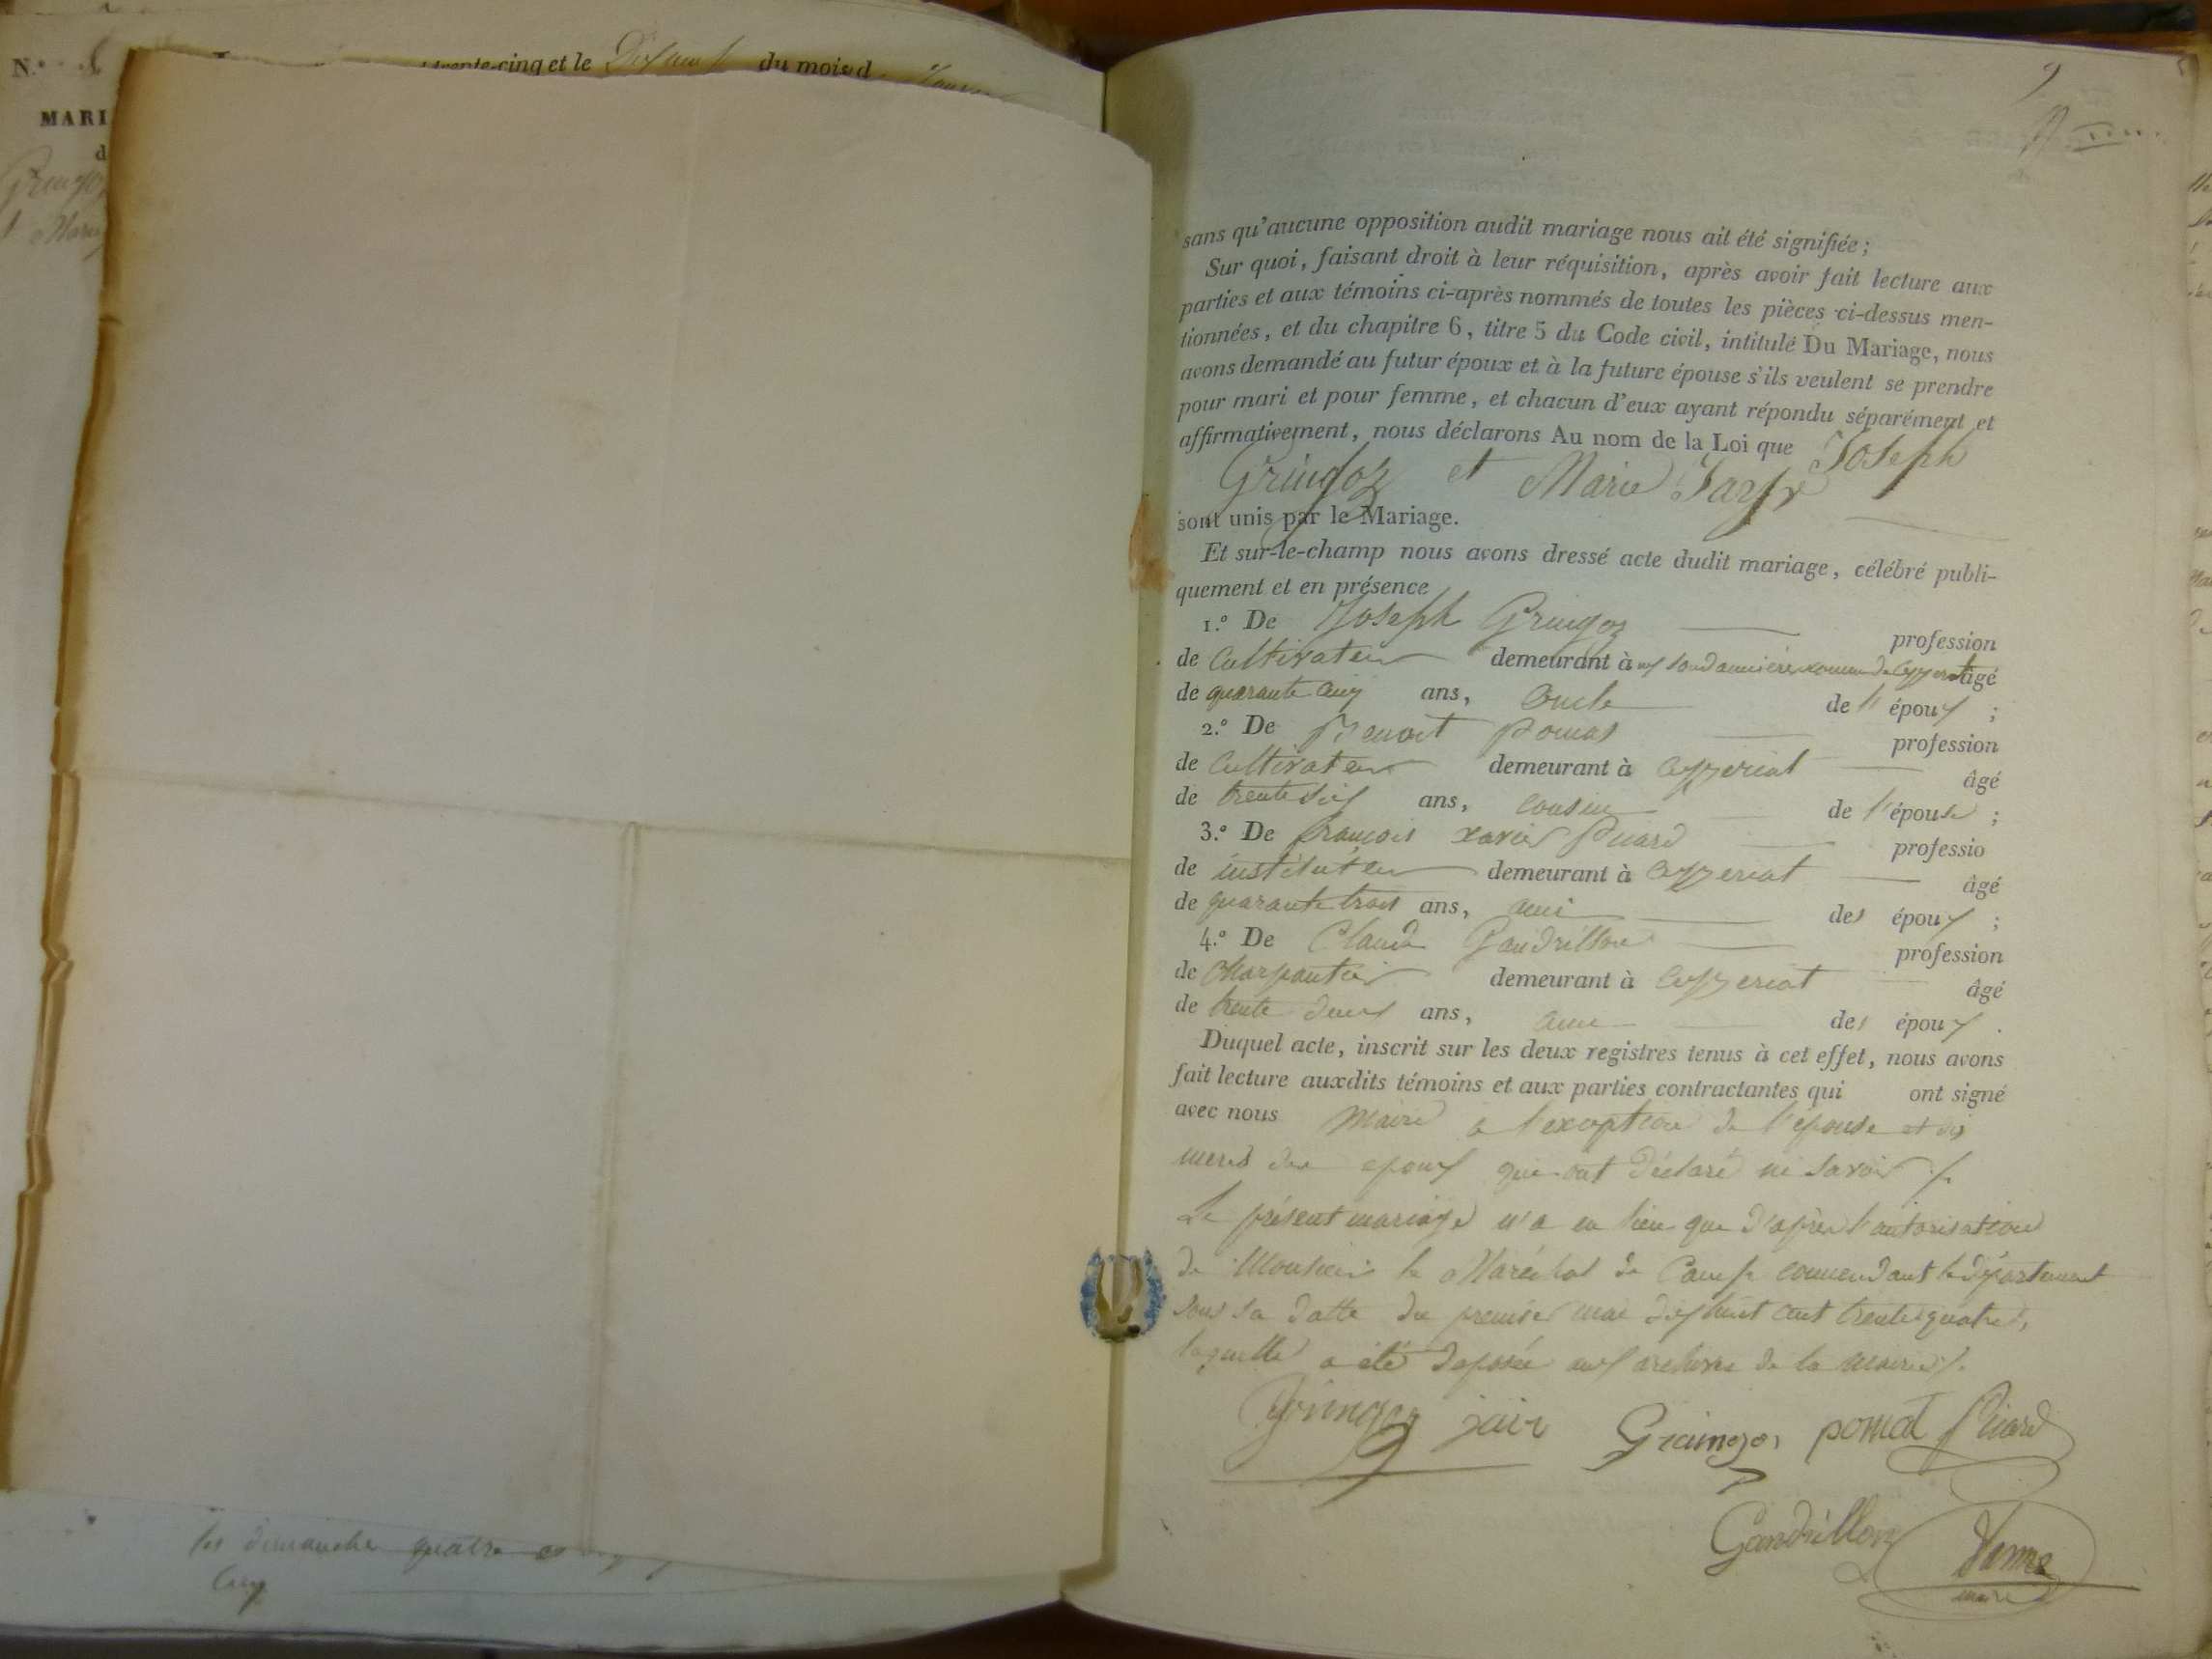 N.º
trente-cinq et le du mois d
MARI
d
les dimanche quatre et
sans qu'aucune opposition audit mariage nous ait été signifiée;
Sur quoi, faisant droit à leur réquisition, après avoir fait lecture aux
parties et aux témoins ci-après nommés de toutes les pièces ci-dessus men-
tionnées, et du chapitre 6, titre 5 du Code civil, intitulé Du Mariage, nous
avons demandé au futur époux et à la future épouse s'ils veulent se prendre
pour mari et pour femme, et chacun d'eux ayant répondu séparément et
affirmativement, nous déclarons Au nom de la Loi que Joseph
Gringoz et Marie
sont unis par le Mariage.
Et sur-le-champ nous avons dressé acte dudit mariage, célébré publi-
quement et en présence
1.º De Joseph Gringoz profession
de Cultivateur demeurant à âgé
de quarante cinq ans, oncle de l' époux ;
2.º De Benoit Pomat profession
de Cultivateur demeurant à Ceyzeriat âgé
de trente six ans, cousin de l'épouse ;
3.º De françois xavier Picard professio
de instituteur demeurant à Ceyzeriat âgé
de quarante trois ans, ami des époux ;
4.º De Claude Gandrillon profession
de Charpantier demeurant à Ceyzeriat âgé
de trente deux ans, ami des époux .
Duquel acte, inscrit sur les deux registres tenus à cet effet, nous avons
fait lecture auxdits témoins et aux parties contractantes qui ont signé
avec nous Maire a l'exception de l'épouse et des
meres des epoux qui ont déclaré ne savoir
Le présent mariage n'a eu lieu que d'après l'autorisation
de Monsieur le Maréchal de Camp commendant le département
sous la datte du premier mai dix huit cent trente quatre,
laquelle a été deposée aux archives de la mairie
Gringoz Gringoz pomat Picard
Gandrillon
maire